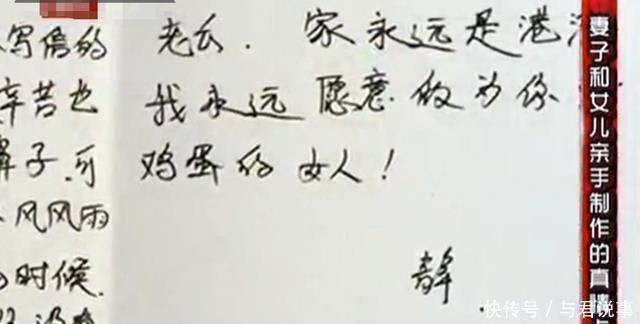 写信的
辛苦也
鼻子.可
风风雨
时候
老公.家永远是港
我永远愿意做为你
鸡蛋的女人!
静
妻子和女儿亲手制作的真情
快传号/与君说事